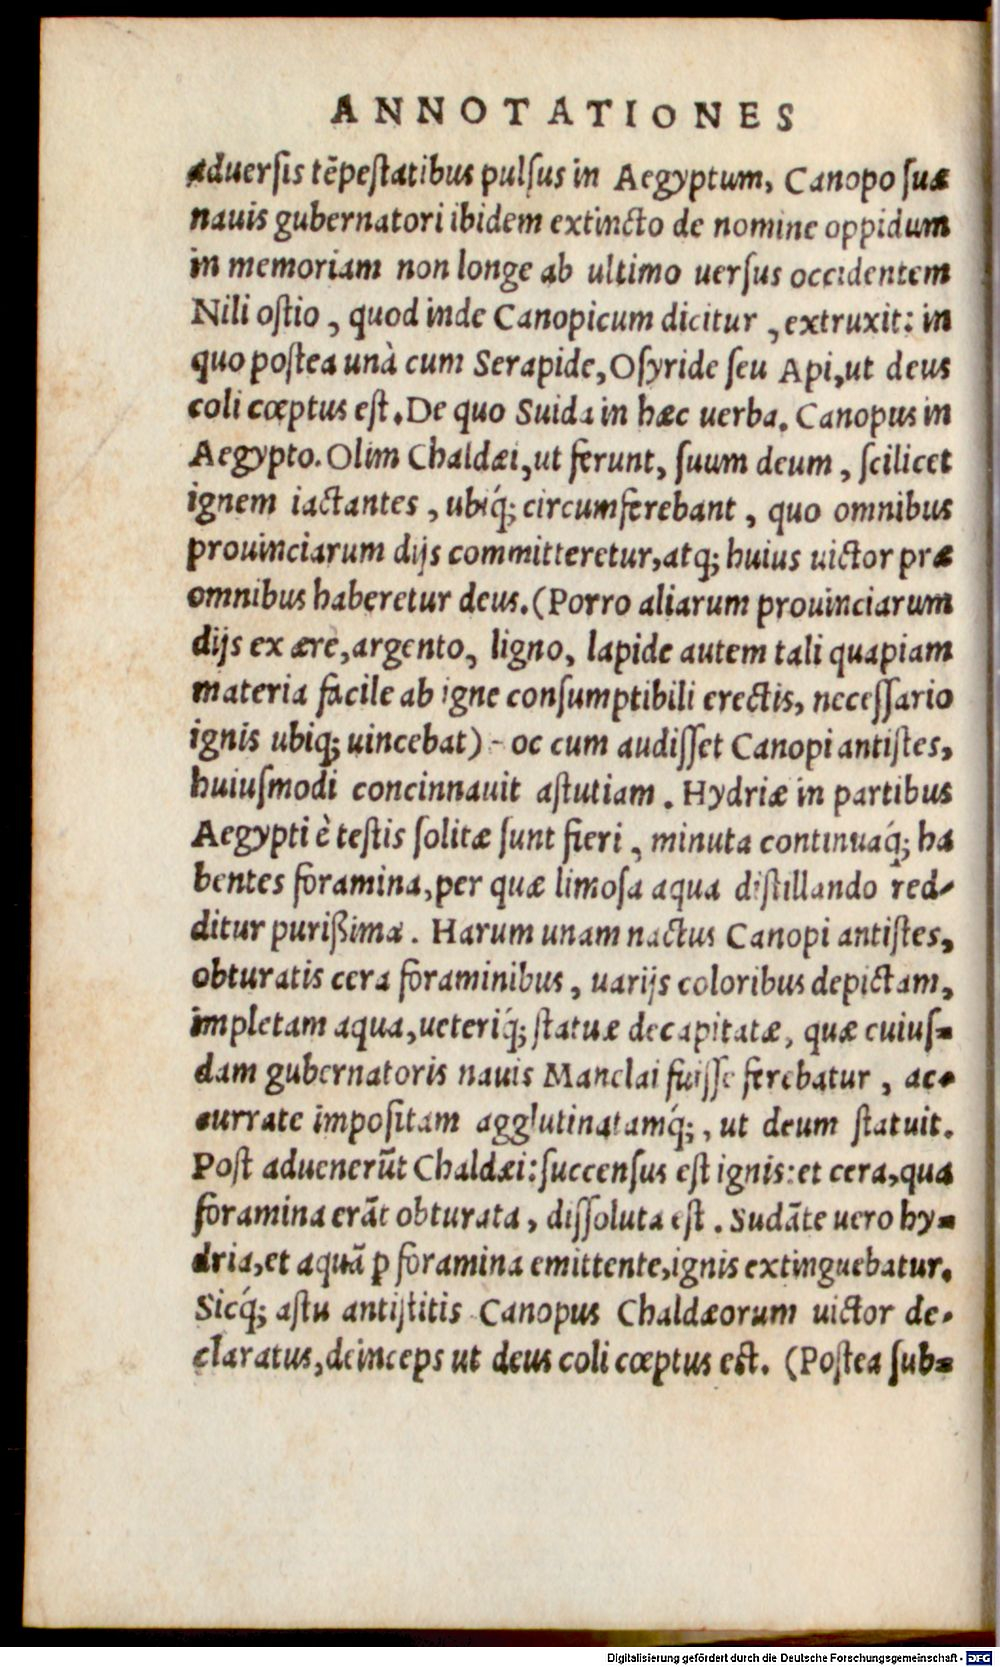 ANNOTATIONES
aduersis tẽpestatibus pulsus in Aegyptum, Canopo suæ
nauis gubernatori ibidem extincto de nomine oppidum
in memoriam non longe ab ultimo uersus occidentem
Nili ostio, quod inde Canopicum dicitur, extruxit: in
quo postea unà cum Serapide, Osyride seu Api, ut deus
coli cœptus est. De quo Suida in hæc uerba. Canopus in
Aegypto. Olim Chaldæi, ut ferunt, suum deum, scilicet
ignem iactantes, ubiq́; circumferebant, quo omnibus
prouinciarum dijs committeretur, atq; huius uictor præ
omnibus haberetur deus. (Porro aliarum prouinciarum
dijs ex ære, argento, ligno, lapide autem tali quapiam
materia facile ab igne consumptibili erectis, necessario
ignis ubiq; uincebat) oc cum audisset Canopi antistes,
huiusmodi concinnauit astutiam. Hydriæ in partibus
Aegypti è testis solitæ sunt fieri, minuta continuaq́; ha
bentes foramina, per quæ limosa aqua distillando red-
ditur purißima. Harum unam nactus Canopi antistes,
obturatis cera foraminibus, uarijs coloribus depictam,
impletam aqua, ueteriq́; statuæ decapitatæ, quæ cuius-
dam gubernatoris nauis Manelai fuisse ferebatur, ac-
currate impositam agglutinatamq́;, ut deum statuit.
Post aduenerũt Chaldæi: succensus est ignis: et cera, qua
foramina erãt obturata, dissoluta est. Sudãte uero hy-
dria, et aquã ꝑ foramina emittente, ignis extinguebatur.
Sicq́; astu antistitis Canopus Chaldæorum uictor de-
claratus, deinceps ut deus coli cœptus est. (Postea sub-
Digitalisierung gefördert durch die Deutsche Forschungsgemeinschaft - DFG